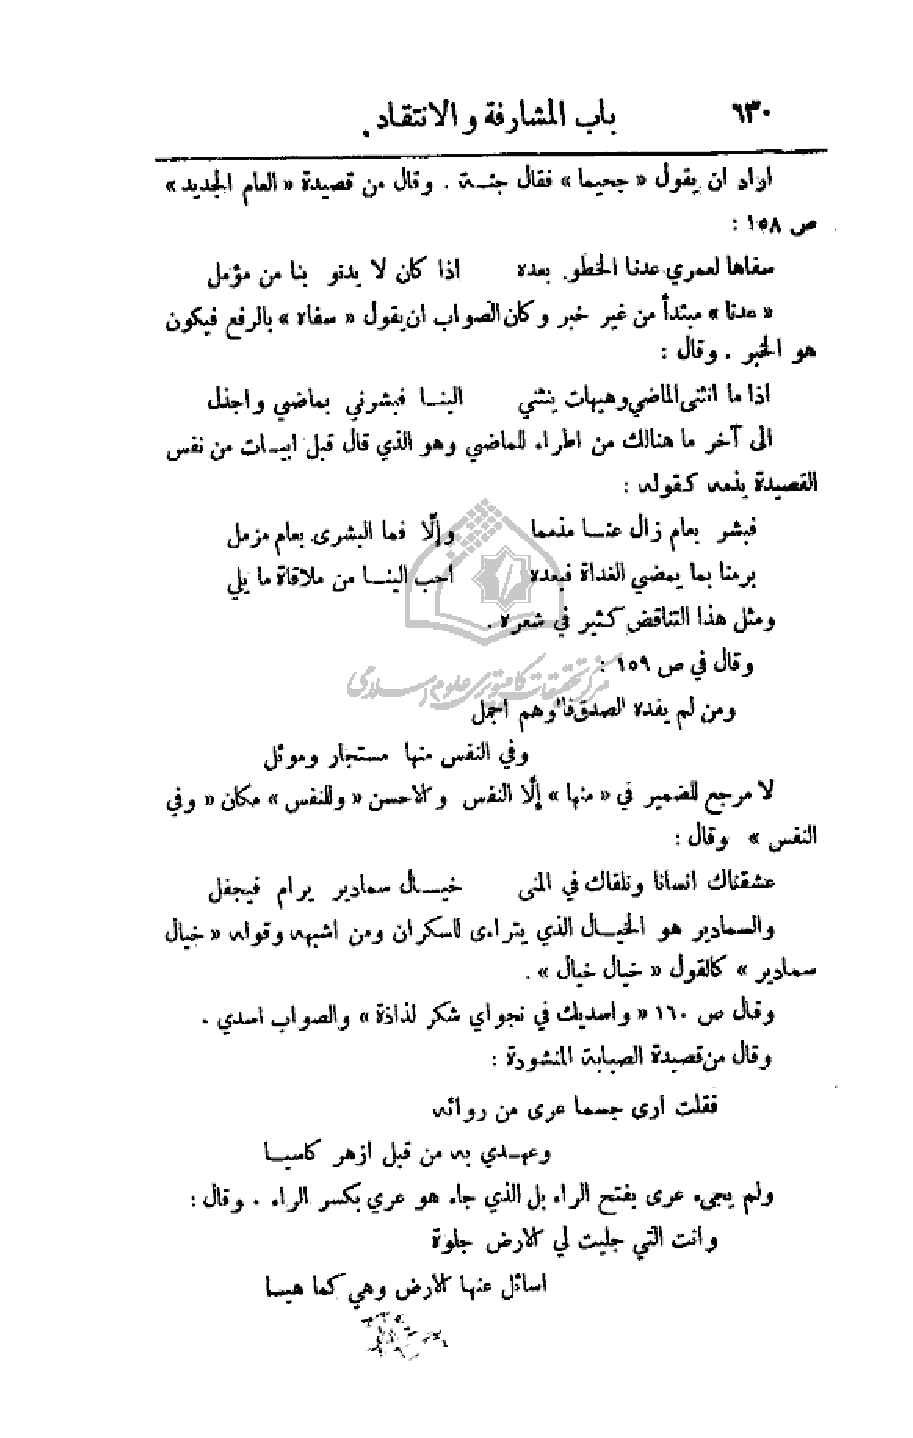 ٦٣٠ باب المشارفة والانتقاد.
اراد ان يقول « جحيما » فقال جنــة . وقال من قصيدة « العام الجديد »
ص ١٥٨ :
سفاها لعمري عدنا الخطو. بعده اذا كان لا يدنو بنا من مؤمل
« عدنا » مبتدأ من غير خبر وكان الصواب ان يقول « سفاه » بالرفع فيكون
هو الخبر . وقال :
اذا ما انثنى الماضي وهيهات ينثني الينــا فبشرني بماضي واجذل
الى آخر ما هنالك من اطراء للماضي وهو الذي قال قبل ابيــات من نفس
القصيدة يذمه كقوله :
فبشر بعام زال عنــا مذمما وإلّا فما البشرى بعام مزمل
برمنا بما يمضي الغداة فبعده احب الينــا من ملاقاة ما يلي
ومثل هذا التناقض كثير في شعره .
مركز تحقيقات كامپيوتری علوم اسلامی
وقال في ص ١٥٩ :
ومن لم يفده الصدق فالوهم اجمل
وفي النفس منها مستجار وموئل
لا مرجع للضمير في « منها » إلّا النفس والاحسن « وللنفس » مكان « وفي
النفس » وقال :
عشقناك انسانا ونلفاك في المنى خيــال سمادير يرام فيجفل
والسمادير هو الخيــال الذي يتراءى للسكران ومن اشبهه وقوله « خيال
سمادير » كالقول « خيال خيال » .
وقال ص ١٦٠ « واسديك في نجواي شكر لذاذة » والصواب اسدي .
وقال من قصيدة الصبابة المنشودة :
فقلت ارى جسما عرى من روائه
وعهــدي به من قبل ازهر كاسيــا
ولم يجىء عرى بفتح الراء بل الذي جاء هو عري بكسر الراء . وقال :
وانت التي جليت لي الارض جلوة
اسائل عنها الارض وهي كما هيــا